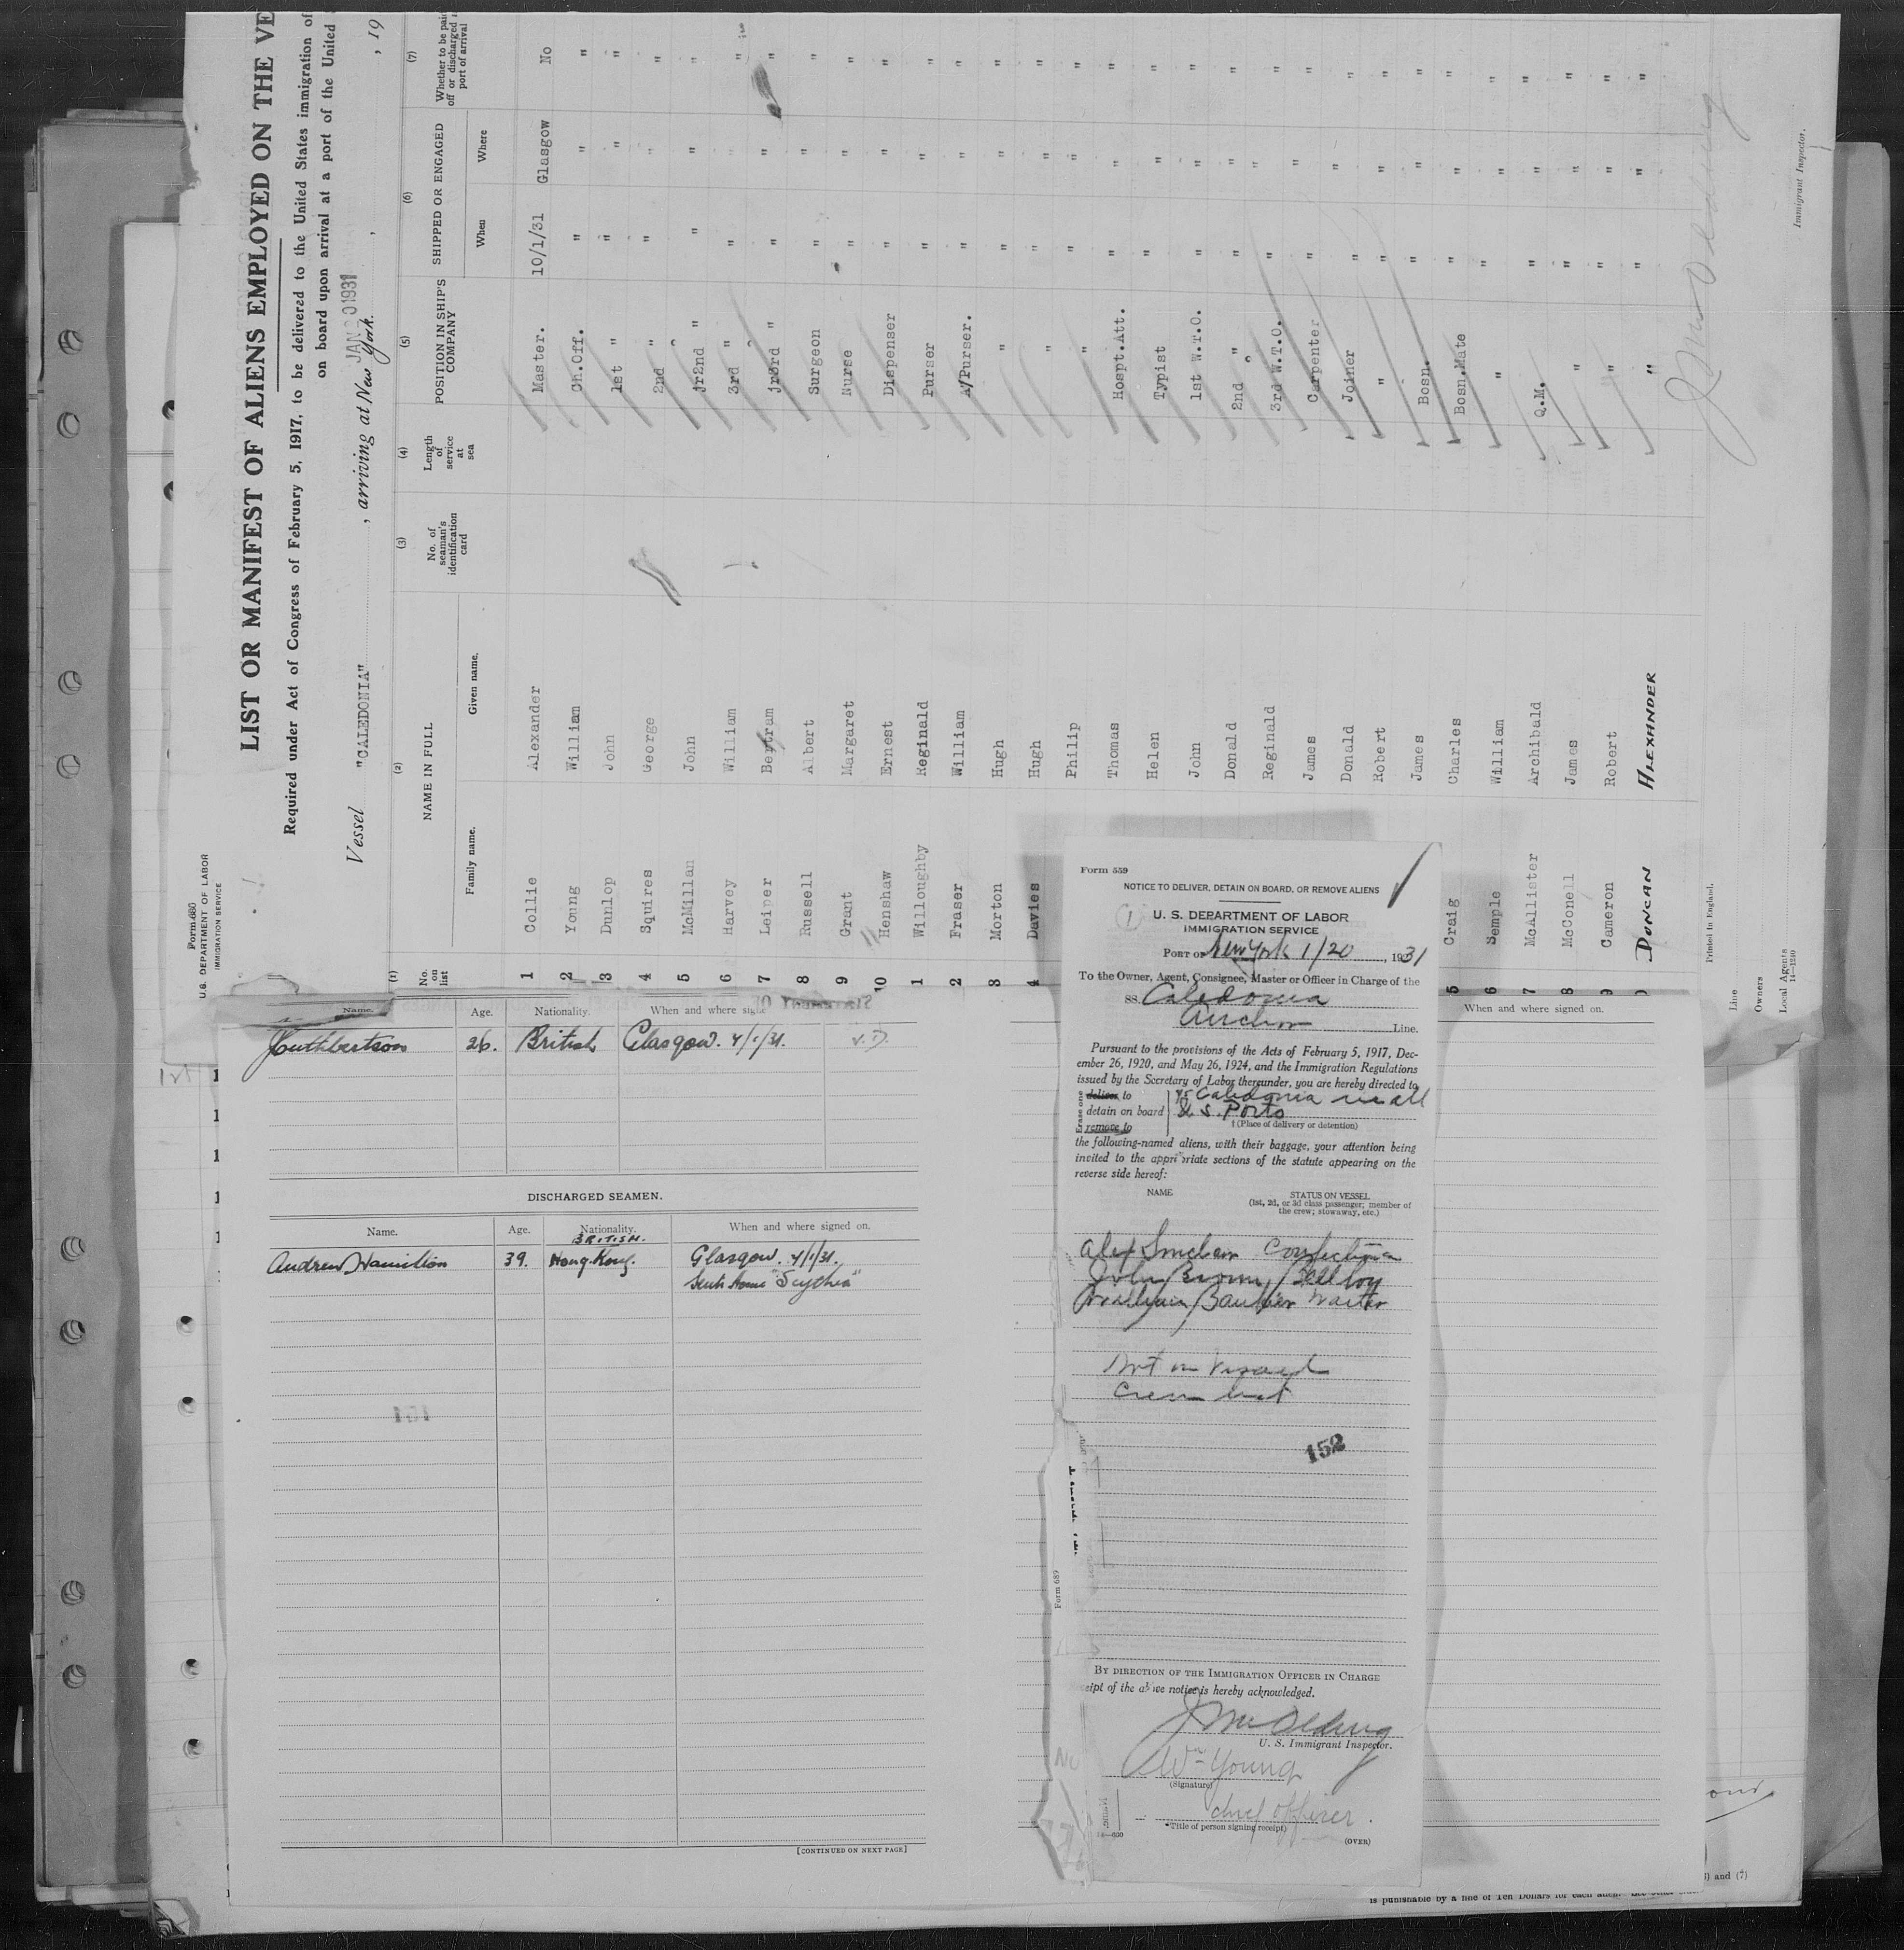 Form 680
U. S. DEPARTMENT OF LABOR
IMMIGRATION SERVICE
LIST OR MANIFEST OF ALIENS EMPLOYED ON THE VE
Required under Act of Congress of February 5, 1917, to be delivered to the United States immigration of
on board upon arrival at a port of the United
Vessel "CALEDONIA", arriving at New York. JAN 20 1931, , 19
(1) (2) (3) (4) (5) (6) (7)
No. on list NAME IN FULL No. of seaman's identification card Length of service at sea POSITION IN SHIP'S COMPANY SHIPPED OR ENGAGED Whether to be paid off or discharged at port of arrival
Family name. Given name. When Where
1 Collie Alexander Master. 10/1/31 Glasgow No
2 Young William Ch.Off. " " "
3 Dunlop John 1st " " " "
4 Squires George 2nd " " " "
5 McMillan John jr2nd " " " "
6 Harvey William 3rd " " " "
7 Leiper Bertram jr3rd " " " "
8 Russell Albert Surgeon " " "
9 Grant Margaret Nurse " " "
10 Henshaw Ernest Dispenser " " "
1 Willoughby Reginald Purser " " "
2 Fraser William A/Purser. " " "
3 Morton Hugh " " " "
4 Davies Hugh " " " "
Philip " " " "
Thomas Hospt.Att. " " "
Helen Typist " " "
John 1st W.T.O. " " "
Donald 2nd " " " "
Reginald 3rd W.T.O. " " "
James Carpenter " " "
Donald Joiner " " "
Robert " " " "
James Bosn. " " "
5 Craig Charles Bosn.Mate " " "
6 Semple William " " " "
7 McAllister Archibald Q.M. " " "
8 McConell James " " " "
9 Cameron Robert " " " "
0 DUNCAN ALEXANDER " " " "
Printed in England.
Line
Owners
Local Agents
14—1240
Immigrant Inspector.
Name. Age. Nationality. When and where
J Cuthbertson 26. British Glasgow. 4/1/31. V.D.
DISCHARGED SEAMEN.
Name. Age. Nationality. When and where signed on.
BRITISH.
Andrew Hamilton 39. Hong Kong. Glasgow. 4/1/31.
Sent Home "Scythia"
[CONTINUED ON NEXT PAGE]
Form 559
NOTICE TO DELIVER, DETAIN ON BOARD, OR REMOVE ALIENS
1
U. S. DEPARTMENT OF LABOR
IMMIGRATION SERVICE
PORT OF New York 1/20, 1931
To the Owner, Agent, Consignee, Master or Officer in Charge of the
SS. Caledonia
Anchor Line.
Pursuant to the provisions of the Acts of February 5, 1917, Dec-
ember 26, 1920, and May 26, 1924, and the Immigration Regulations
issued by the Secretary of Labor thereunder, you are hereby directed to
Erase one
deliver to
detain on board
remove to
SS Caledonia in all
U. S. Ports
† (Place of delivery or detention)
the following-named aliens, with their baggage, your attention being
invited to the appropriate sections of the statute appearing on the
reverse side hereof:
NAME STATUS ON VESSEL
(1st, 2d, or 3d class passenger; member of
the crew; stowaway, etc.)
Alex Sinclair Confectioner
John Brown, Bell boy
William Waiter
Not on Visaed
Crew List
152
BY DIRECTION OF THE IMMIGRATION OFFICER IN CHARGE
eipt of the above notice is hereby acknowledged.
U. S. Immigrant Inspector.
Wm Young
(Signature)
chief officer.
*Title of person signing receipt)
(OVER)
Form 689
When and where signed on.
) and (7)
is punishable by a fine of Ten Dollars for each alien.